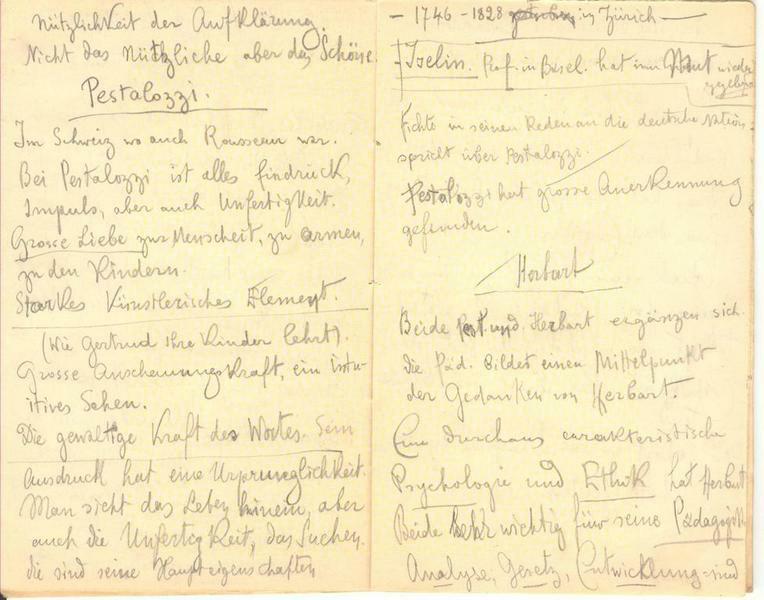 Nützlichkeit der Aufklärung.
Nicht das Nützliche aber das Schöne.
Pestalozzi.
Im Schweiz wo auch Rousseau war.
Bei Pestalozzi ist alles Eindruck,
Impuls, aber auch Unfertigkeit.
Grosse Liebe zur Menscheit, zu armen,
zu den Kindern.
Starkes Künstlerisches Element.
(Wie Gertrud ihre Kinder lehrt).
Grosse Anschauungskraft, ein intu-
itives Sehen.
Die gewaltige Kraft des Wortes. Sein
Ausdruck hat eine Ursprunglichkeit.
Man sieht das Leben hinein, aber
auch die Unfertigkeit, das Suchen.
die sind seine Haupteigenschaften
- 1746 - 1828 in Zürich -
Iselin. Prof. in Basel. hat ihm Mut wieder
gegeben
Fichte in seinen Reden an die deutsche Nation
spricht über Pestalozzi.
Pestalozzi hat grosse Anerkennung
gefunden.
Herbart
Beide Pest. und Herbart ergänzen sich.
die Päd. bildet einen Mittelpunkt
der Gedanken von Herbart.
Eine durchaus carakteristische
Psychologie und Ethik hat Herbart
Beide sehr wichtig für seine Pädagogik
Analyse, Gesetz, Entwicklung sind